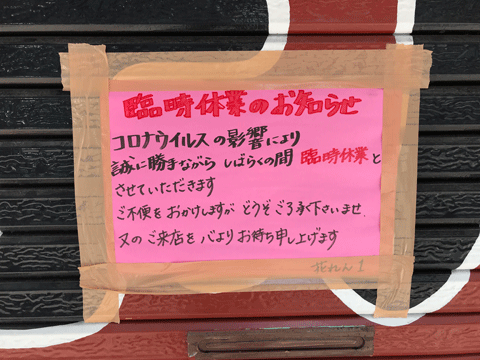 臨時休業のお知らせ
コロナウイルスの影響により
誠に勝手ながら しばらくの間 臨時休業と
させていただきます
ご不便を おかけしますが どうぞ ご了承下さいませ.
又の ご来店を 心より お待ち申し上げます